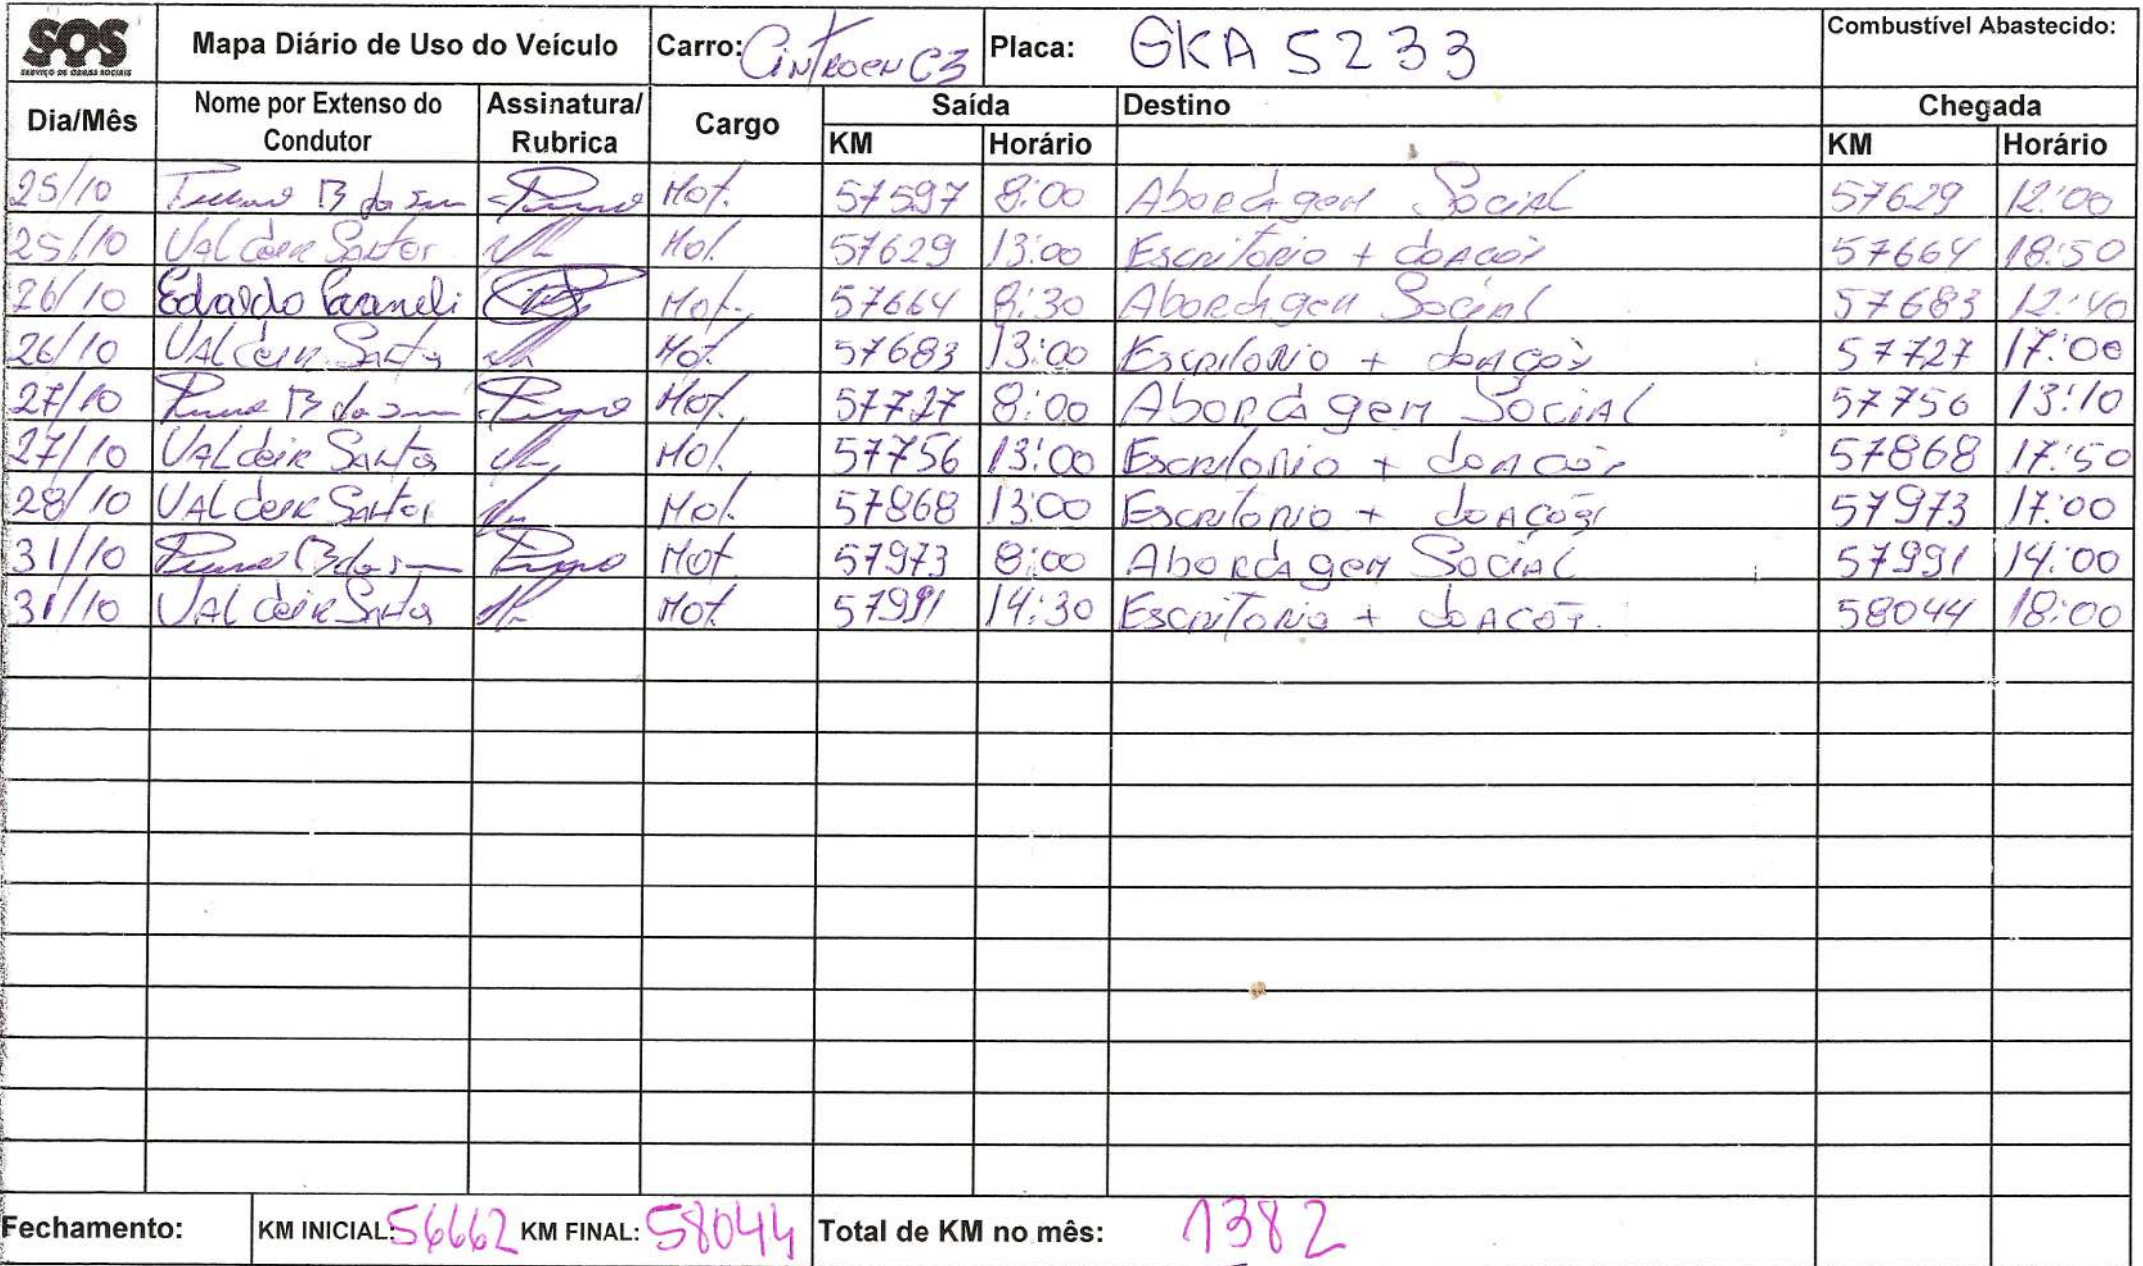 SOS Mapa Diário de Uso do Veículo Carro: Cintroen C3 Placa: GKA 5233 Combustível Abastecido:
SERVIÇO DE OBRAS SOCIAIS
Dia/Mês Nome por Extenso do Condutor Assinatura/ Rubrica Cargo Saída Destino Chegada
KM Horário KM Horário
25/10 B da Mot. 57597 8:00 Abordagem Social 57629 12:00
25/10 Valdeir Santos Mot. 57629 13:00 Escritorio + doações 57664 18:50
26/10 Edvaldo Mot. 57664 8:30 Abordagem Social 57683 12:40
26/10 Valdeir Santos Mot. 57683 13:00 Escritorio + doações 57727 17:00
27/10 B da Mot. 57727 8:00 Abordagem Social 57756 13:10
27/10 Valdeir Santos Mot. 57756 13:00 Escritorio + doações 57868 17:50
28/10 Valdeir Santos Mot. 57868 13:00 Escritorio + doações 57973 17:00
31/10 B da Mot 57973 8:00 Abordagem Social 57991 14:00
31/10 Valdeir Santos Mot. 57991 14:30 Escritorio + doações 58044 18:00
Fechamento: KM INICIAL: 56662 KM FINAL: 58044 Total de KM no mês: 1382